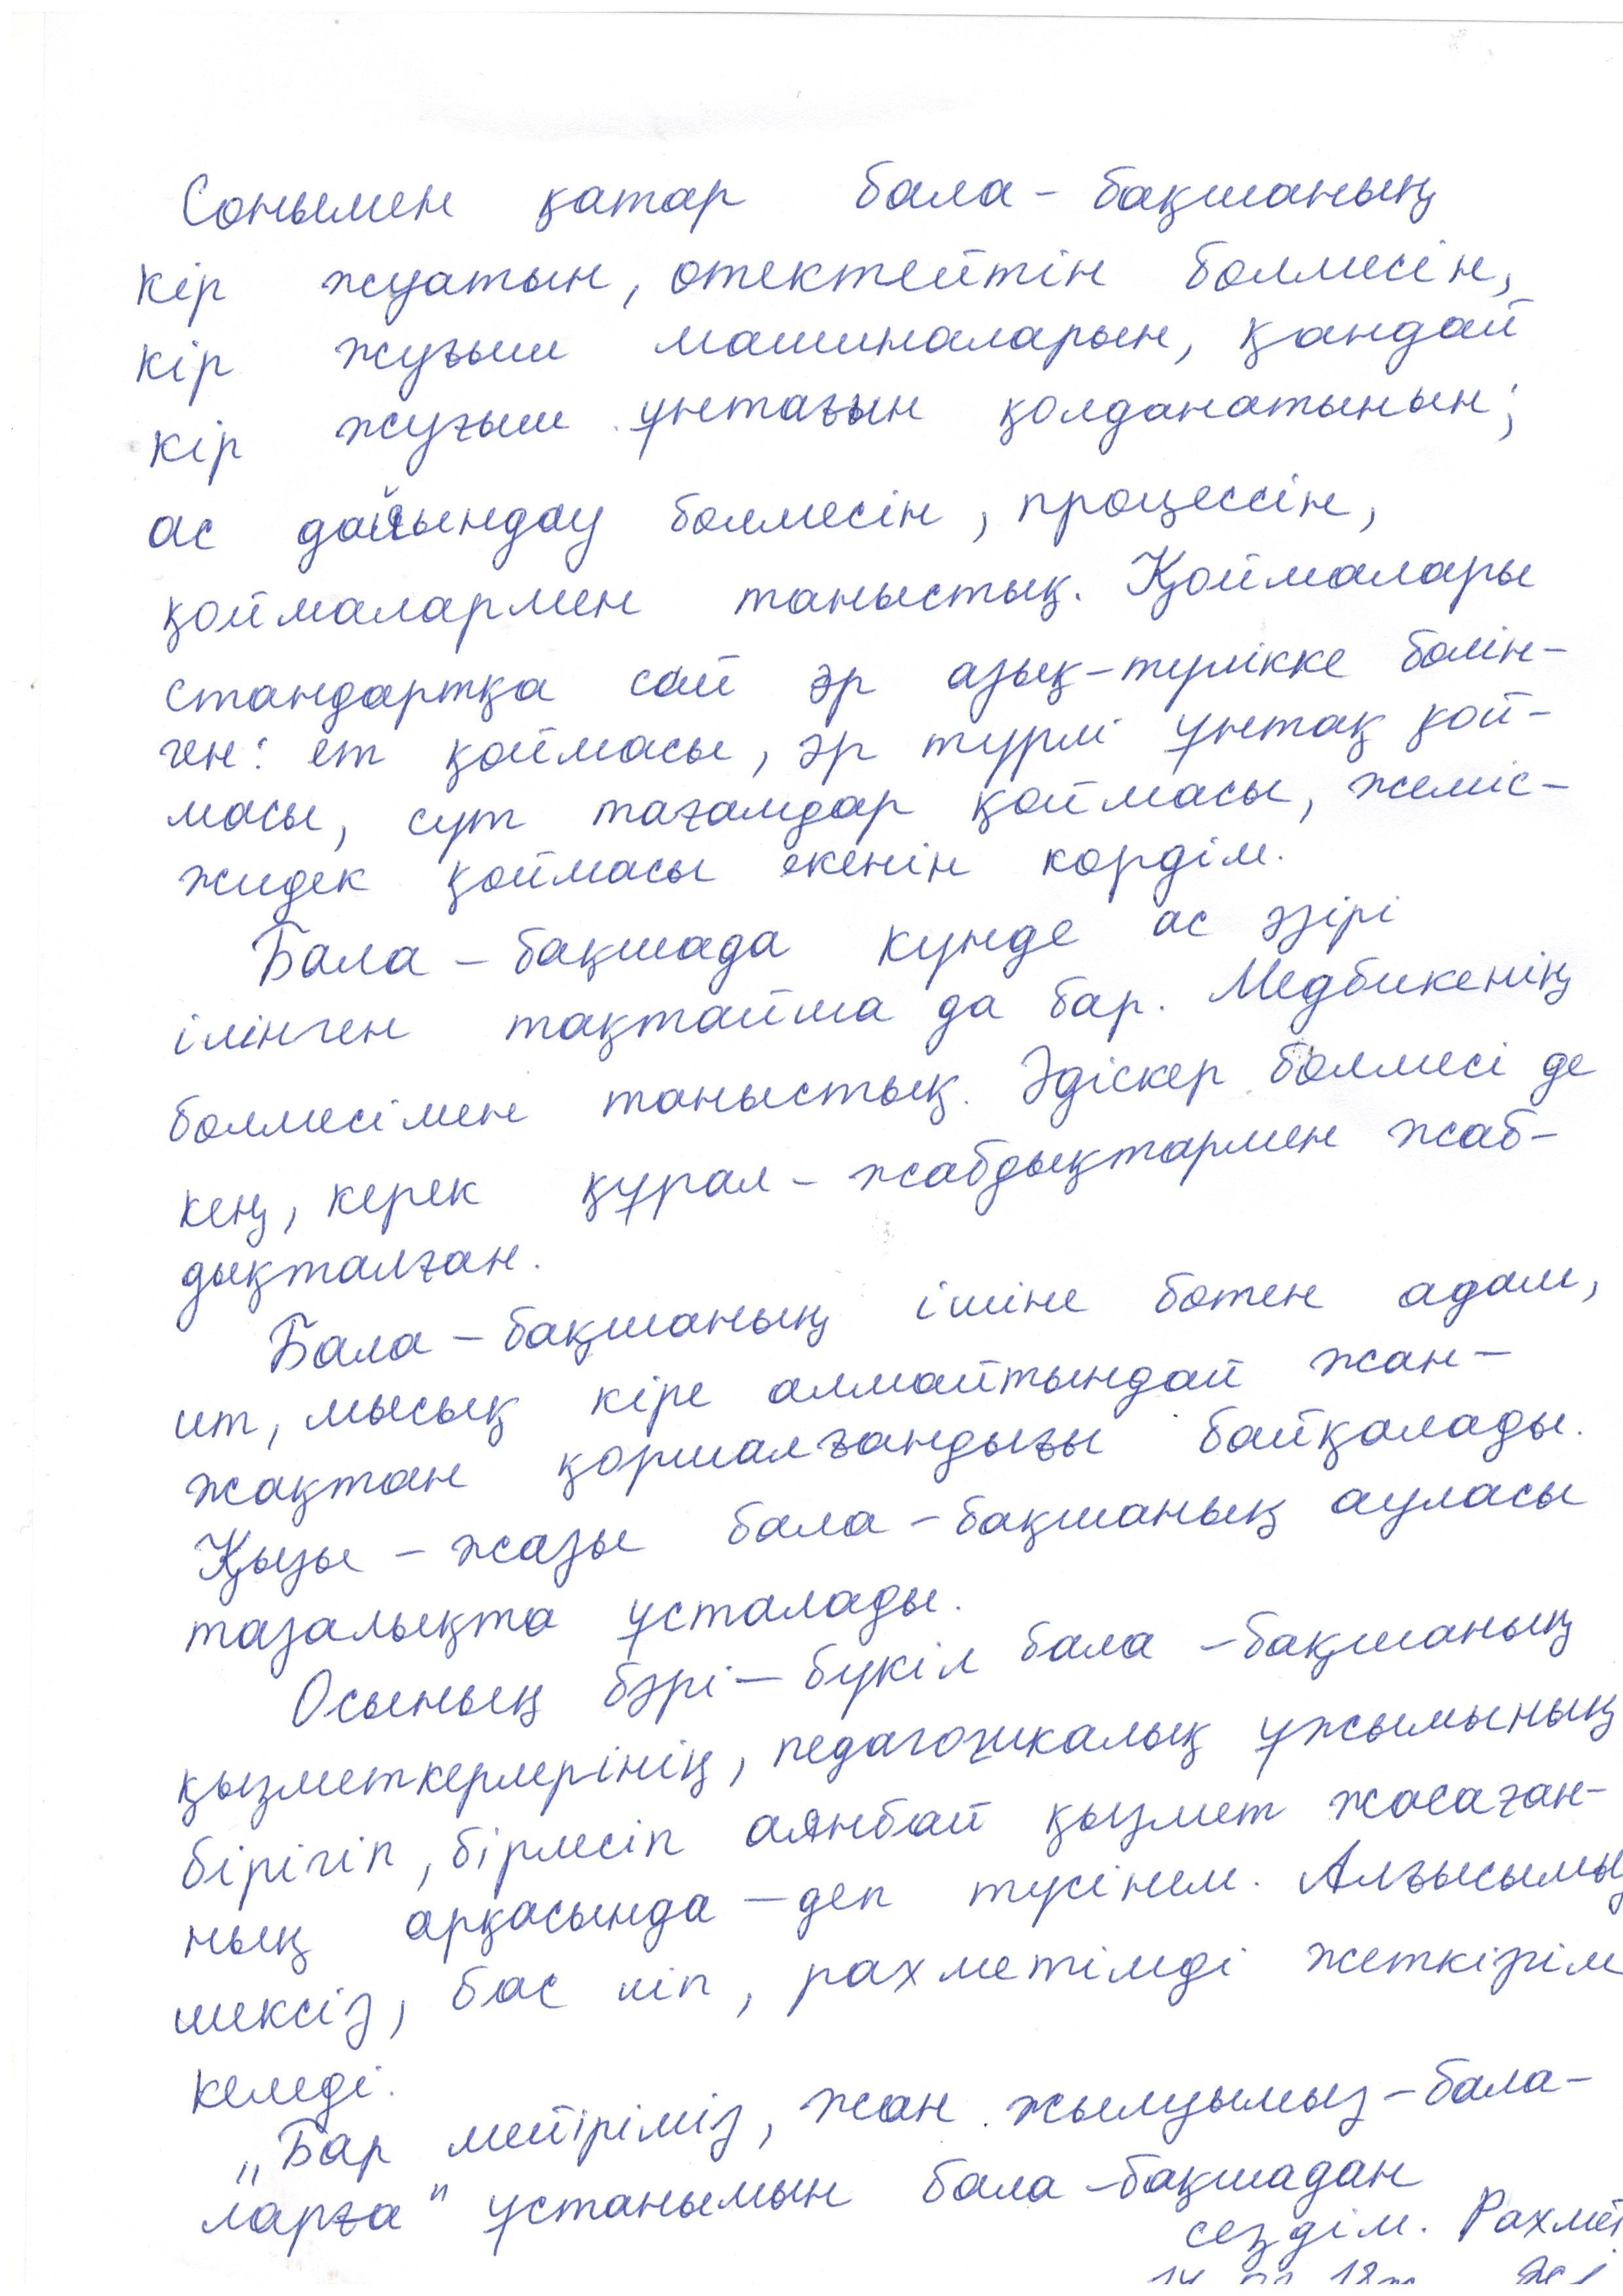 Сонымен қатар бала-бақшаның
кір жуатын, өтектейтін бөлмесін,
кір жуғыш машиналарын, қандай
кір жуғыш ұнтағын қолданатынын;
ас дайындау бөлмесін, процессін,
қоймалармен таныстық. Қоймалары
стандартқа сай әр азық-түлікке бөлін-
ген: ет қоймасы, әр түрлі ұнтақ қой-
масы, сүт тағамдар қоймасы, жеміс-
жидек қоймасы екенін көрдім.
Бала-бақшада күнде ас әзірі
ілінген тақтайша да бар. Медбикенің
бөлмесімен таныстық. Әдіскер бөлмесі де
кең, керек құрал-жабдықтармен жаб-
дықталған.
Бала-бақшаның ішіне бөтен адам,
ит, мысық кіре алмайтындай жан-
жақтан қоршалғандығы байқалады.
Қызы-жазы бала-бақшаның ауласы
тазалықта ұсталады.
Осының бәрі-бүкіл бала-бақшаның
қызметкерлерінің, педагогикалық ұжымының
бірігіп, бірлесіп аянбай қызмет жасаған-
ның арқасында-деп түсінем. Алғысымыз
шексіз, бас иіп, рахметімді жеткізгім
келеді.
„Бар мейіріміз, жан жылуымыз-бала-
ларға" ұстанымын бала-бақшадан
сездім. Рахмет